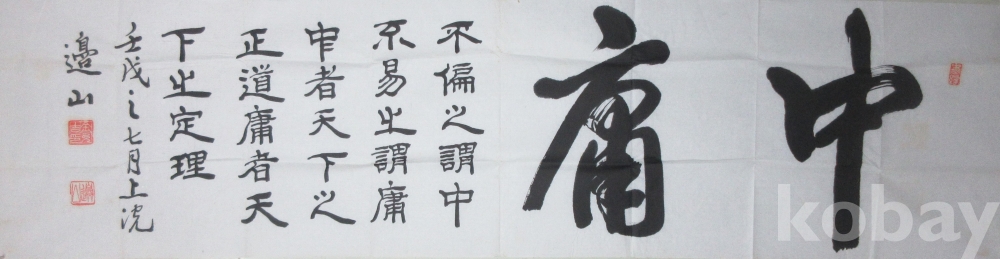 中庸
不偏之謂中
不易之謂庸
中者天下之
正道庸者天
下之定理
壬戌之七月上浣
邊山
kobay